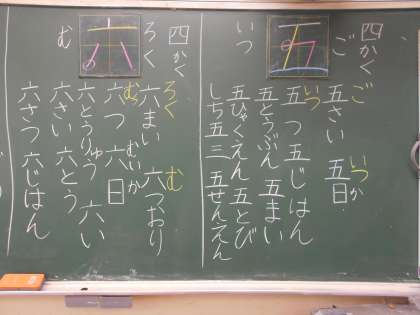 四かく
ご
五
いつ
ご いつか
五さい 五日
いつ
五つ 五じはん
五とうぶん 五まい
五ひゃくえん 五とび
しち五三 五せんえん
四かく
ろく
六
む
ろく む
六まい 六つおり
むいか
六つ 六日
六とうりゅう 六い
六さい 六とう
六さつ 六じはん